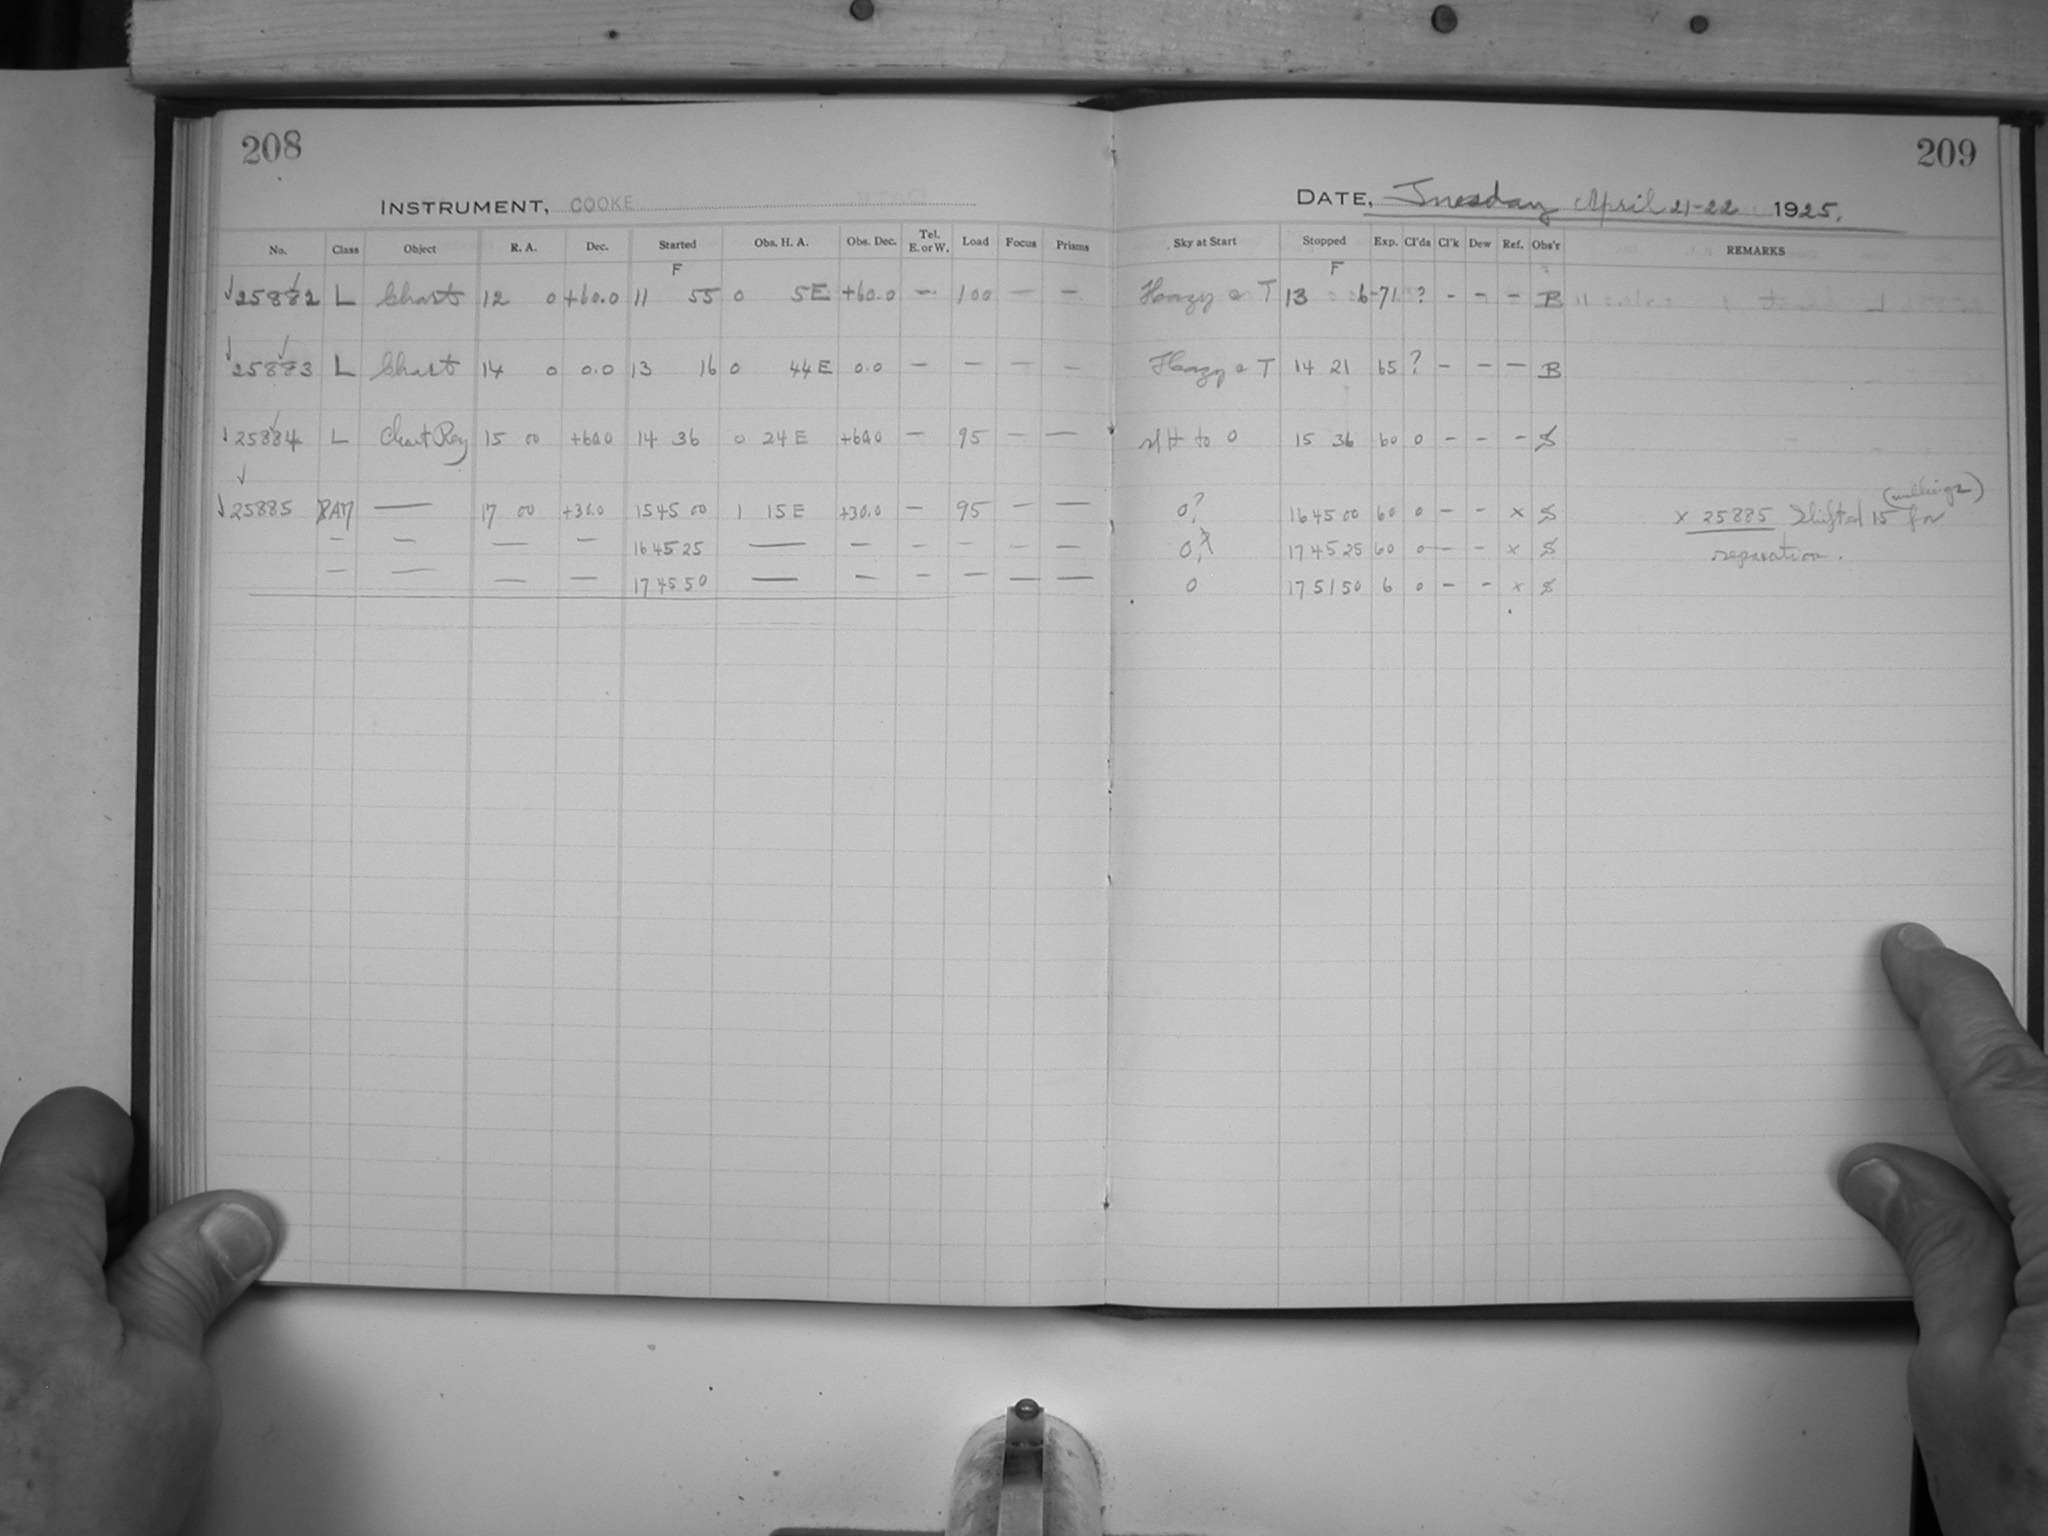 208
INSTRUMENT, COOKE
No. Class Object R. A. Dec. Started Obs. H. A. Obs. Dec. Tel. E. or W. Load Focus Prisms
F
25882 L Chart 12 0 +60.0 11 55 0 5E +60.0 - 100 - -
25883 L Chart 14 0 0.0 13 16 0 44E 0.0 - - - -
25884 L Chart Reg 15 00 +60.0 14 36 0 24E +60.0 - 95 - -
25885 RAM — 17 00 +30.0 15 45 00 1 15E +30.0 - 95 - -
- - - - 16 45 25 — - - - - -
- - - - 17 45 50 — - - - - -
209
DATE, Tuesday April 21-22 1925.
Sky at Start Stopped Exp. Cl'ds Cl'k Dew Ref. Obs'r REMARKS
F
Hazy T 13 6 71 ? - - - B
Hazy T 14 21 65 ? - - - B
slH to 0 15 36 60 0 - - - S
0? 16 45 00 60 0 - - x S x 25885 Shifted 15 (millings) for
0 17 45 25 60 0 - - x S separation.
0 17 51 50 6 0 - - x S